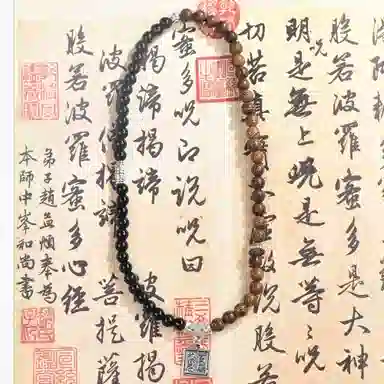 般若波羅蜜多是大神
明呪是無上呪是無等等呪
切苦真 故說般若
蜜多呪即說呪曰
揭諦揭諦 波羅揭
波羅僧揭諦 菩提薩
般若波羅蜜多心經
弟子趙孟頫奉為
本師中峯和尚書